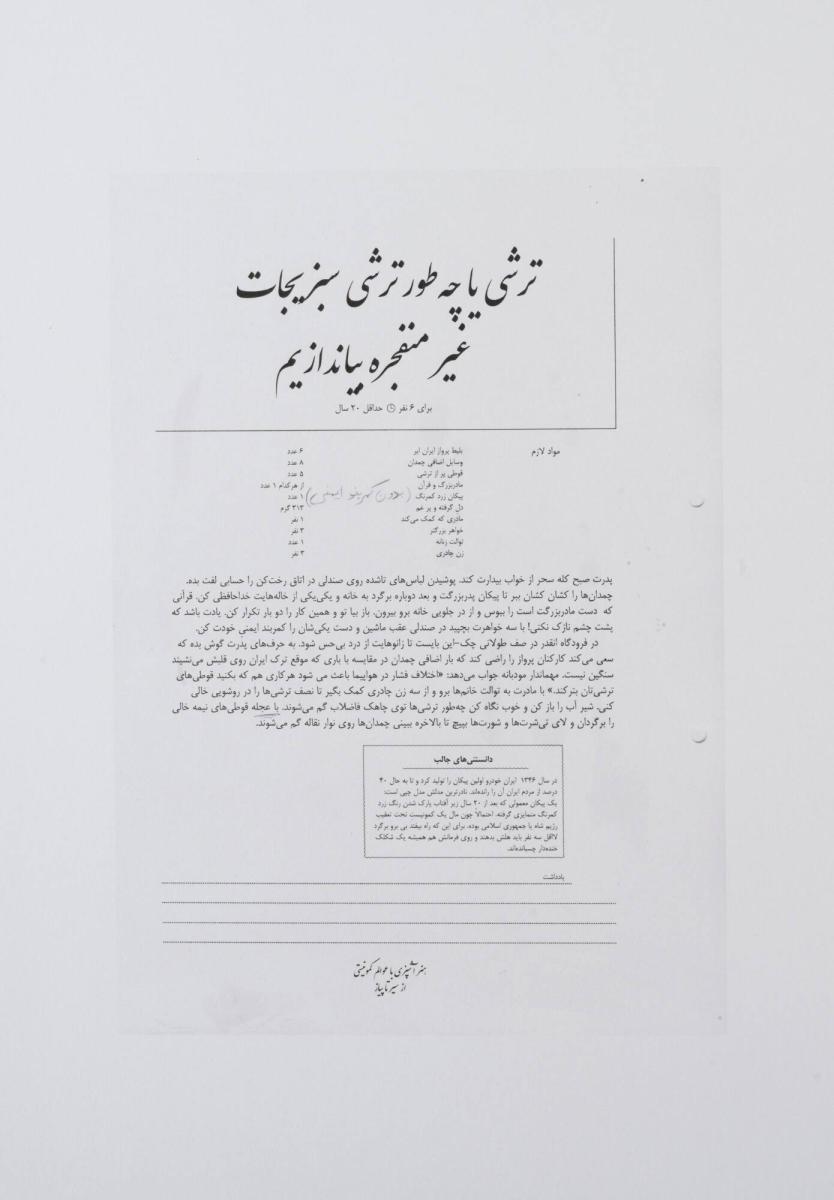 ترشی یا چه طور ترشی سبزیجات
غیر منفجره بیاندازیم
برای ۶ نفر حداقل ۲۰ سال
مواد لازم
بلیط پرواز ایران ایر ۶ عدد
وسایل اضافی چمدان ۸ عدد
قوطی پر از ترشی ۵ عدد
مادربزرگ و قرآن از هرکدام ۱ عدد
پیکان زرد کمرنگ (بدون کمربند ایمنی) ۱ عدد
دل گرفته و پر غم ۳۱۳ گرم
مادری که کمک می‌کند ۱ نفر
خواهر بزرگتر ۳ نفر
توالت زنانه ۱ عدد
زن چادری ۳ نفر
پدرت صبح کله سحر از خواب بیدارت کند. پوشیدن لباس‌های تاشده روی صندلی در اتاق رخت‌کن را حسابی لفت بده.
چمدان‌ها را کشان کشان ببر تا پیکان پدربزرگت و بعد دوباره برگرد به خانه و یکی‌یکی از خاله‌هایت خداحافظی کن. قرآنی
که دست مادربزرگت است را ببوس و از در جلویی خانه برو بیرون. باز بیا تو و همین کار را دو بار تکرار کن. یادت باشد که
پشت چشم نازک نکنی! با سه خواهرت بچپید در صندلی عقب ماشین و دست یکی‌شان را کمربند ایمنی خودت کن.
در فرودگاه انقدر در صف طولانی چک-این بایست تا زانوهایت از درد بی‌حس شود. به حرف‌های پدرت گوش بده که
سعی می‌کند کارکنان پرواز را راضی کند که بار اضافی چمدان در مقایسه با باری که موقع ترک ایران روی قلبش می‌نشیند
سنگین نیست. مهماندار مودبانه جواب می‌دهد: «اختلاف فشار در هواپیما باعث می شود هرکاری هم که بکنید قوطی‌های
ترشی‌تان بترکند.» با مادرت به توالت خانم‌ها برو و از سه زن چادری کمک بگیر تا نصف ترشی‌ها را در روشویی خالی
کنی. شیر آب را باز کن و خوب نگاه کن چه‌طور ترشی‌ها توی چاهک فاضلاب گم می‌شوند. با عجله قوطی‌های نیمه خالی
را برگردان و لای تی‌شرت‌ها و شورت‌ها بپیچ تا بالاخره ببینی چمدان‌ها روی نوار نقاله گم می‌شوند.
دانستنی‌های جالب
در سال ۱۳۴۶ ایران خودرو اولین پیکان را تولید کرد و تا به حال ۴۰
درصد از مردم ایران آن را رانده‌اند. نادرترین مدلش مدل چپی است:
یک پیکان معمولی که بعد از ۲۰ سال زیر آفتاب پارک شدن رنگ زرد
کمرنگ متمایزی گرفته. احتمالا چون مال یک کمونیست تحت تعقیب
رژیم شاه یا جمهوری اسلامی بوده. برای این که راه بیفتد بی برو برگرد
لااقل سه نفر باید هلش بدهند و روی فرمانش هم همیشه یک شکلک
خنده‌دار چسبانده‌اند.
یادداشت
هنر آشپزی با عوالم کمونیستی
از سیر تا پیاز